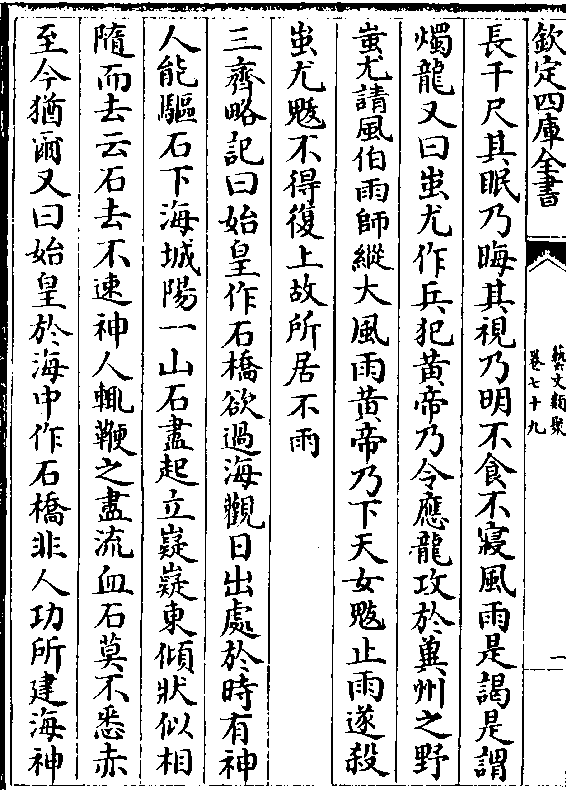 欽定四庫全書
藝文類聚
卷七十九
一
長千尺其眠乃晦其視乃明不食不寢風雨是謁是謂
燭龍又曰蚩尤作兵犯黃帝乃令應龍攻於冀州之野
蚩尤請風伯雨師縱大風雨黃帝乃下天女魃止雨遂殺
蚩尤魃不得復上故所居不雨
三齊略記曰始皇作石橋欲過海觀日出處於時有神
人能驅石下海城陽一山石盡起立嶷嶷東傾狀似相
隨而去云石去不速神人輒鞭之盡流血石莫不悉赤
至今猶爾又曰始皇於海中作石橋非人功所建海神